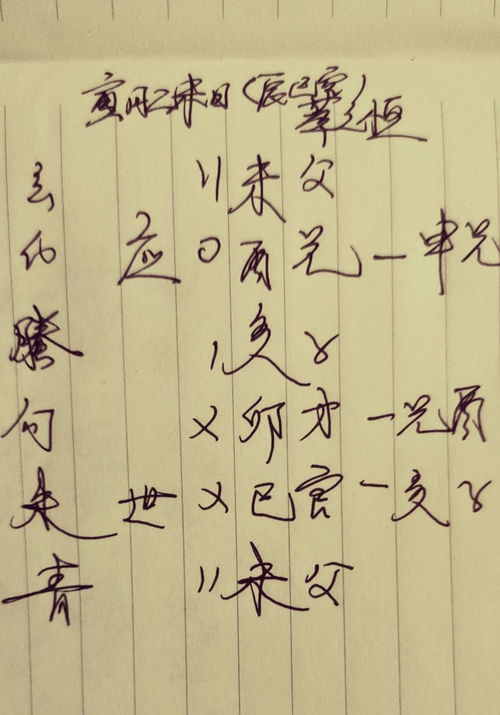 寅月乙未日(辰巳空)
萃之恒
玄 〃未父
白 应 O酉兄—申兄
螣 、亥子
句 ㄨ卯才—兄酉
朱 世 ㄨ巳官—亥子
青 〃未父